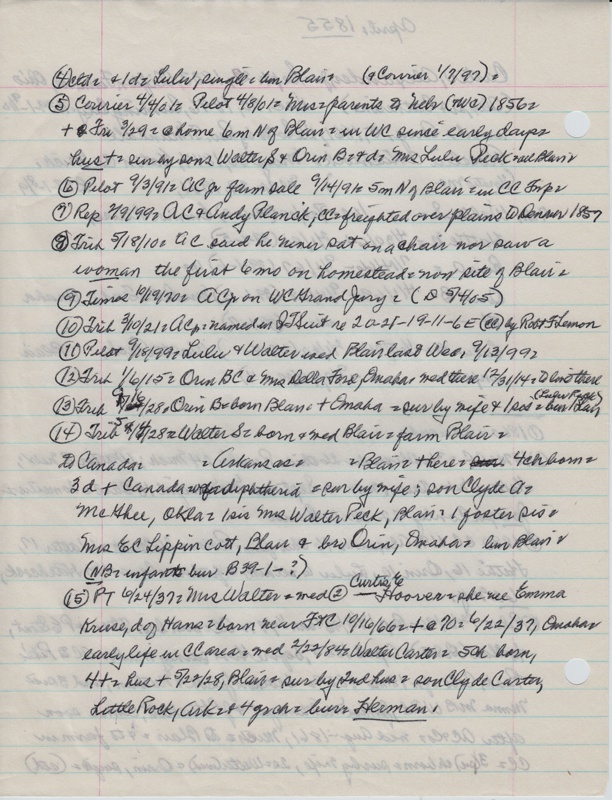 ④ cld= & 1d= Lulu, single= bur Blair= (@ Courier 1/7/97)=
⑤ Courier 4/4/01= Pilot 4/8/01= Mrs= parents to Nebr (+WC) 1856=
+ @ Fri 3/29= @ home 6m N of Blair= in WC since early days=
hus+= sur by sons Walter S & Orin B= & d= Mrs Lulu Peck= all Blair=
⑥ Pilot 9/3/91= AC jr farm sale 9/14/91= 5m N of Blair= in CC Twp=
⑦ Rep 2/9/99= AC & Andy Planck, CC= freighted over plains to Denver 1857
⑧ Trib 5/18/10= AC said he never sat on a chair nor saw a
woman the first 6mo on homestead= now site of Blair=
⑨ Times 10/19/70= AC jr on WC Grand Jury= (D 5/4/05)
⑩ Trib 3/10/21= AC jr= named in QT Suit re 20-28-19-11-6E (CC) by Robt F Lemon
⑪ Pilot 9/18/99= Lulu & Walter wed Blair last Wed, 9/13/99=
⑫ Trib 1/6/15= Orin B C & Mrs Della Fore, Omaha, wed there 12/31/14= to live there
⑬ Trib /28= Orin B= born Blair= + Omaha= sur by wife & 1 sis= (Lulu Peck) bur Blair
⑭ Trib /28= Walter S= born & wed Blair= farm Blair=
to Canada= = Arkansas= = Blair= + here= 4ch born=
3d + Canada of diphtheria= sur by wife; son Clyde A=
McGhee, Okla= 1 sis Mrs Walter Peck, Blair= 1 foster sis=
Mrs EC Lippincott, Blair & bro Orin, Omaha= bur Blair=
(NB= infants bur B39-1-?)
⑮ PT 6/24/37= Mrs Walter= wed ② Curtis E Hoover= she nee Emma
Kruse, d of Hans= born near FTC 10/16/66= + @ 70= 6/22/37, Omaha=
early life in CC area= wed 2/22/84= Walter Carter= 5ch born,
4+= hus + 5/22/28, Blair= sur by 2nd hus= son Clyde Carter,
Little Rock, Ark= & 4 grch= bur= Herman.